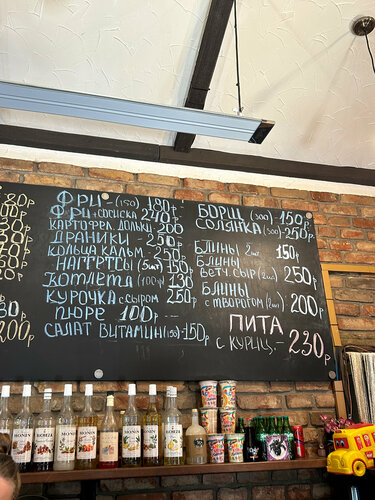 ФРИ (150) 180р
ФРИ + СОСИСКА 240р
КАРТОФЕЛ. ДОЛЬКИ 200
ДРАНИКИ - 250р
КОЛЬЦА КАЛЬМ. 250р
НАГГЕТСЫ (5шт) 150р
КОТЛЕТА (100гр) 130
КУРОЧКА С СЫРОМ 250р
ПЮРЕ 100р
САЛАТ ВИТАМИН (150)-150р
БОРЩ (300)-150р
СОЛЯНКА (300)-250р
БЛИНЫ 2шт 150р
БЛИНЫ
ВЕТЧ. СЫР (2шт) 250р
БЛИНЫ
С ТВОРОГОМ (2шт) 200р
ПИТА
С КУРИЦ. - 230р
200р
MONIN
MONIN
MONIN
MONIN